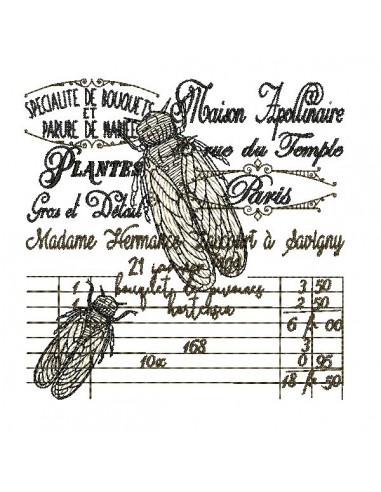 SPECIALITE DE BOUQUETS
ET
PARURE DE
Maison Apollinaire
rue du Temple
PLANTES
Paris
Gros et Détail
Madame Hermance à Savigny
21
1 bouquets de pivoines 3 50
1 hortensia 2 50
6 00
168 3
10x 0 95
18 50